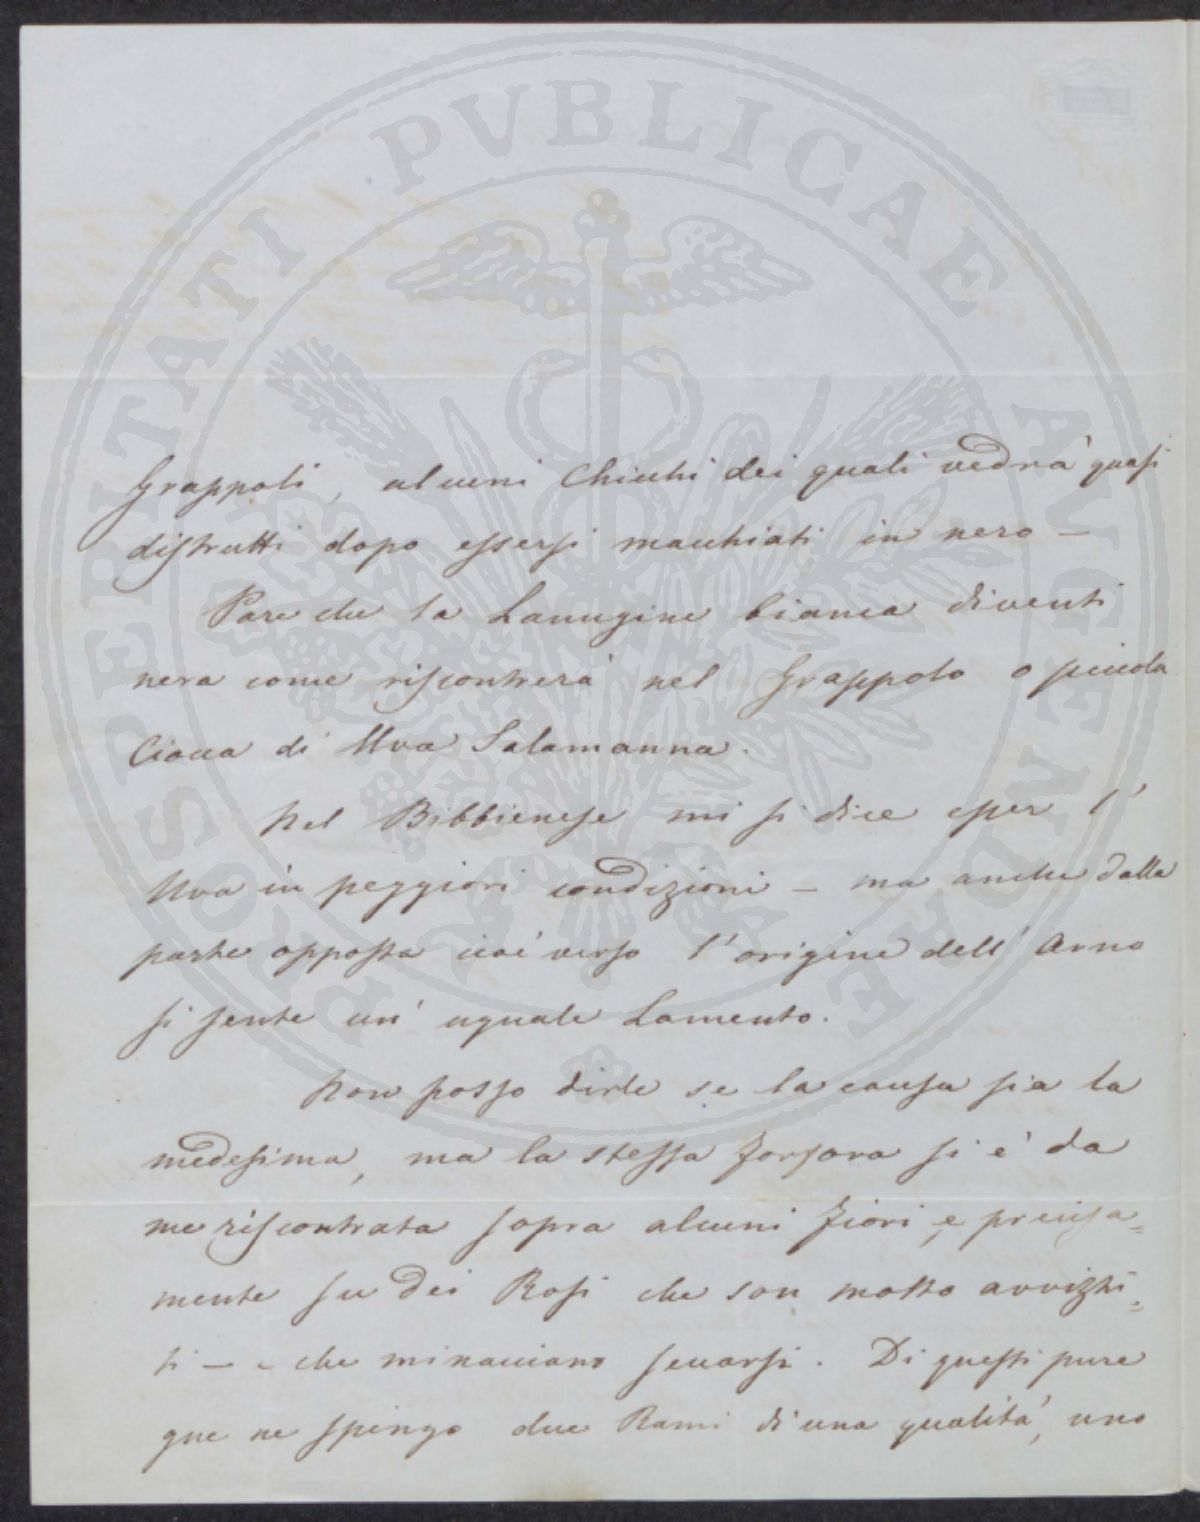 PROSPERITATI PVBLICAE AVGENDAE
Grappoli, alcuni Chicchi dei quali vedrà quasi
distrutti dopo essersi macchiati in nero —
Pare che la Lanugine bianca diventi
nera come riscontrerà nel Grappolo o piccola
Ciocca di Uva Salamanna.
Nel Bibbienese mi si dice esser l'
Uva in peggiori condizioni — ma anche dalla
parte opposta cioè verso l'origine dell'Arno
si sente un'uguale Lamento.
Non posso dirle se la causa sia la
medesima, ma la stessa forfora si è da
me riscontrata sopra alcuni fiori, e precisa=
mente su dei Rosi che son molto avvizzi=
ti — e che minacciano seccarsi. Di questi pure
gne ne spingo due Rami di una qualità, uno